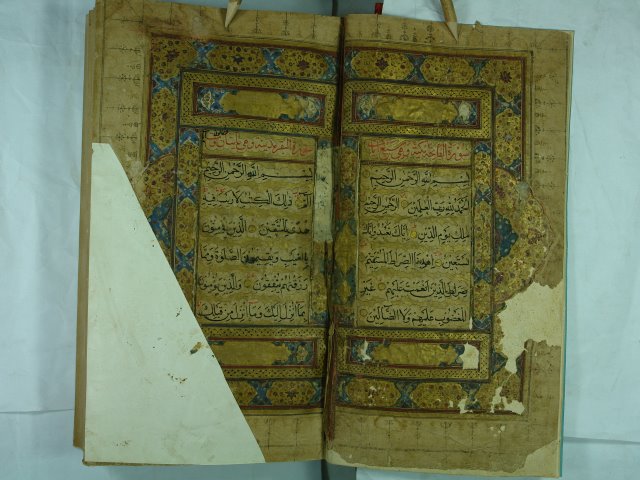 سورة الفاتحة
بسم الله الرحمن الرحيم
الحمد لله رب العلمين الرحمن الرحيم
ملك يوم الدين اياك نعبد واياك
نستعين اهدنا الصراط المستقيم
صراط الذين انعمت عليهم غير
المغضوب عليهم ولا الضالين
سورة البقرة
بسم الله الرحمن الرحيم
الم ذلك الكتب لا ريب فيه
هدى للمتقين الذين يؤمنون
بالغيب ويقيمون الصلوة ومما
رزقنهم ينفقون والذين يؤمنو
بما انزل اليك وما انزل من قبلك